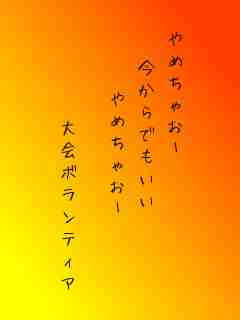 やめちゃおー
今からでもいい
やめちゃおー
大会ボランティア